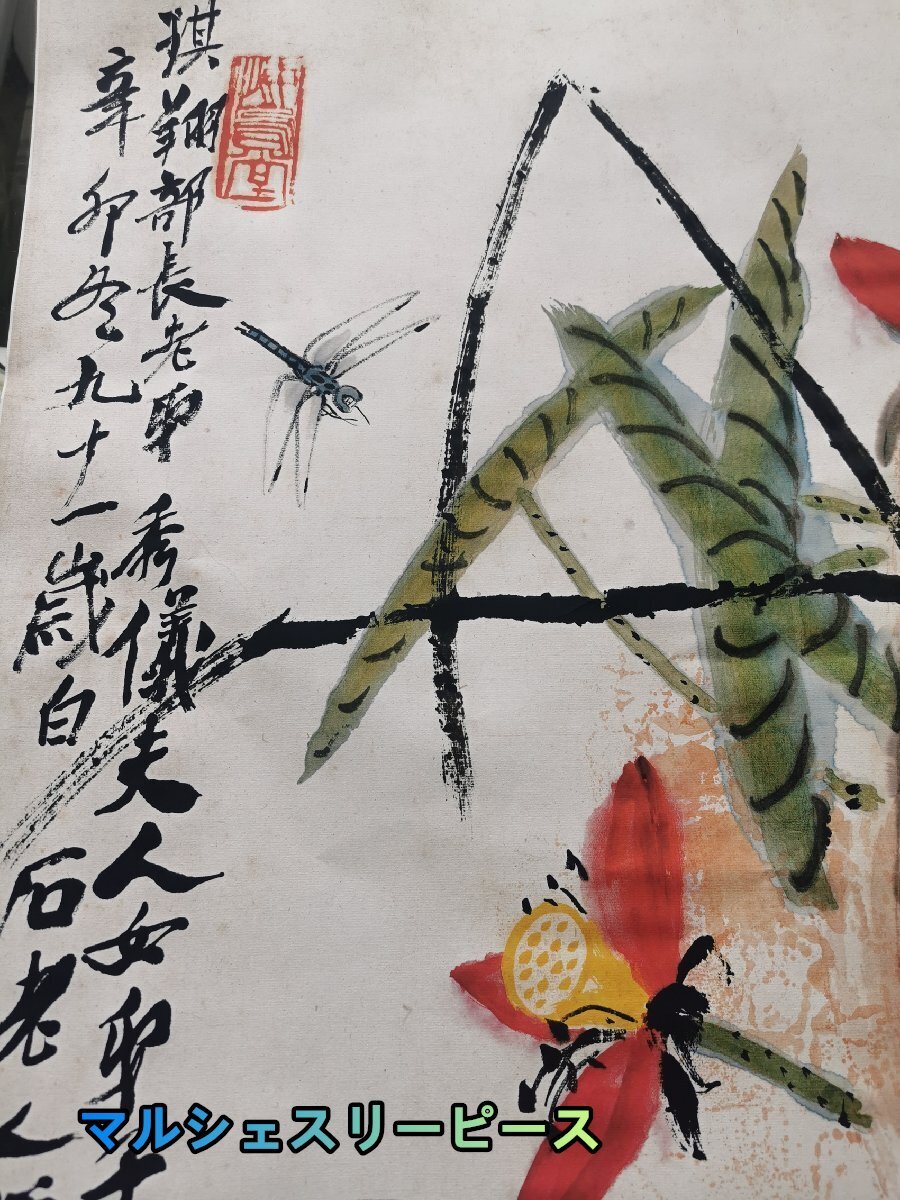 琪翔部長老弟 秀儀夫人女弟
辛卯冬九十一歲白
石老人
悔烏堂
マルシェスリーピース